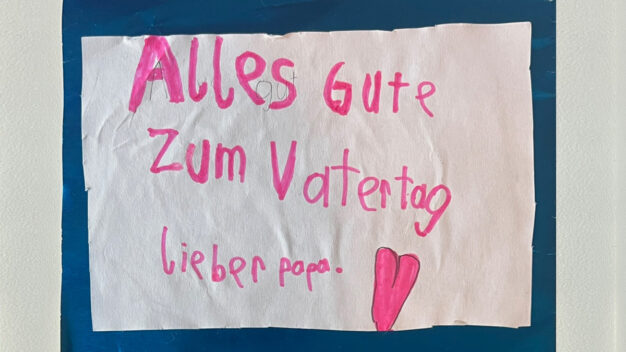 Alles Gute
Zum Vatertag
lieber papa.